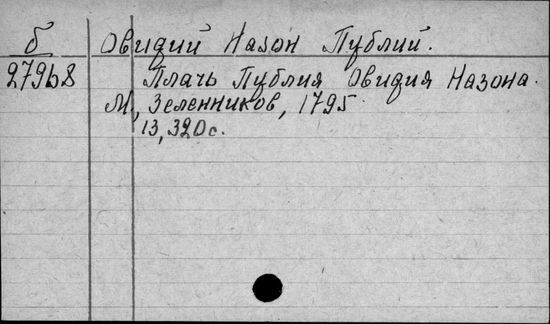 б Овидий Назон Публий.
27968 Плачь Публия Овидия Назона.
М, Зеленников, 1795.
13, 320 с.